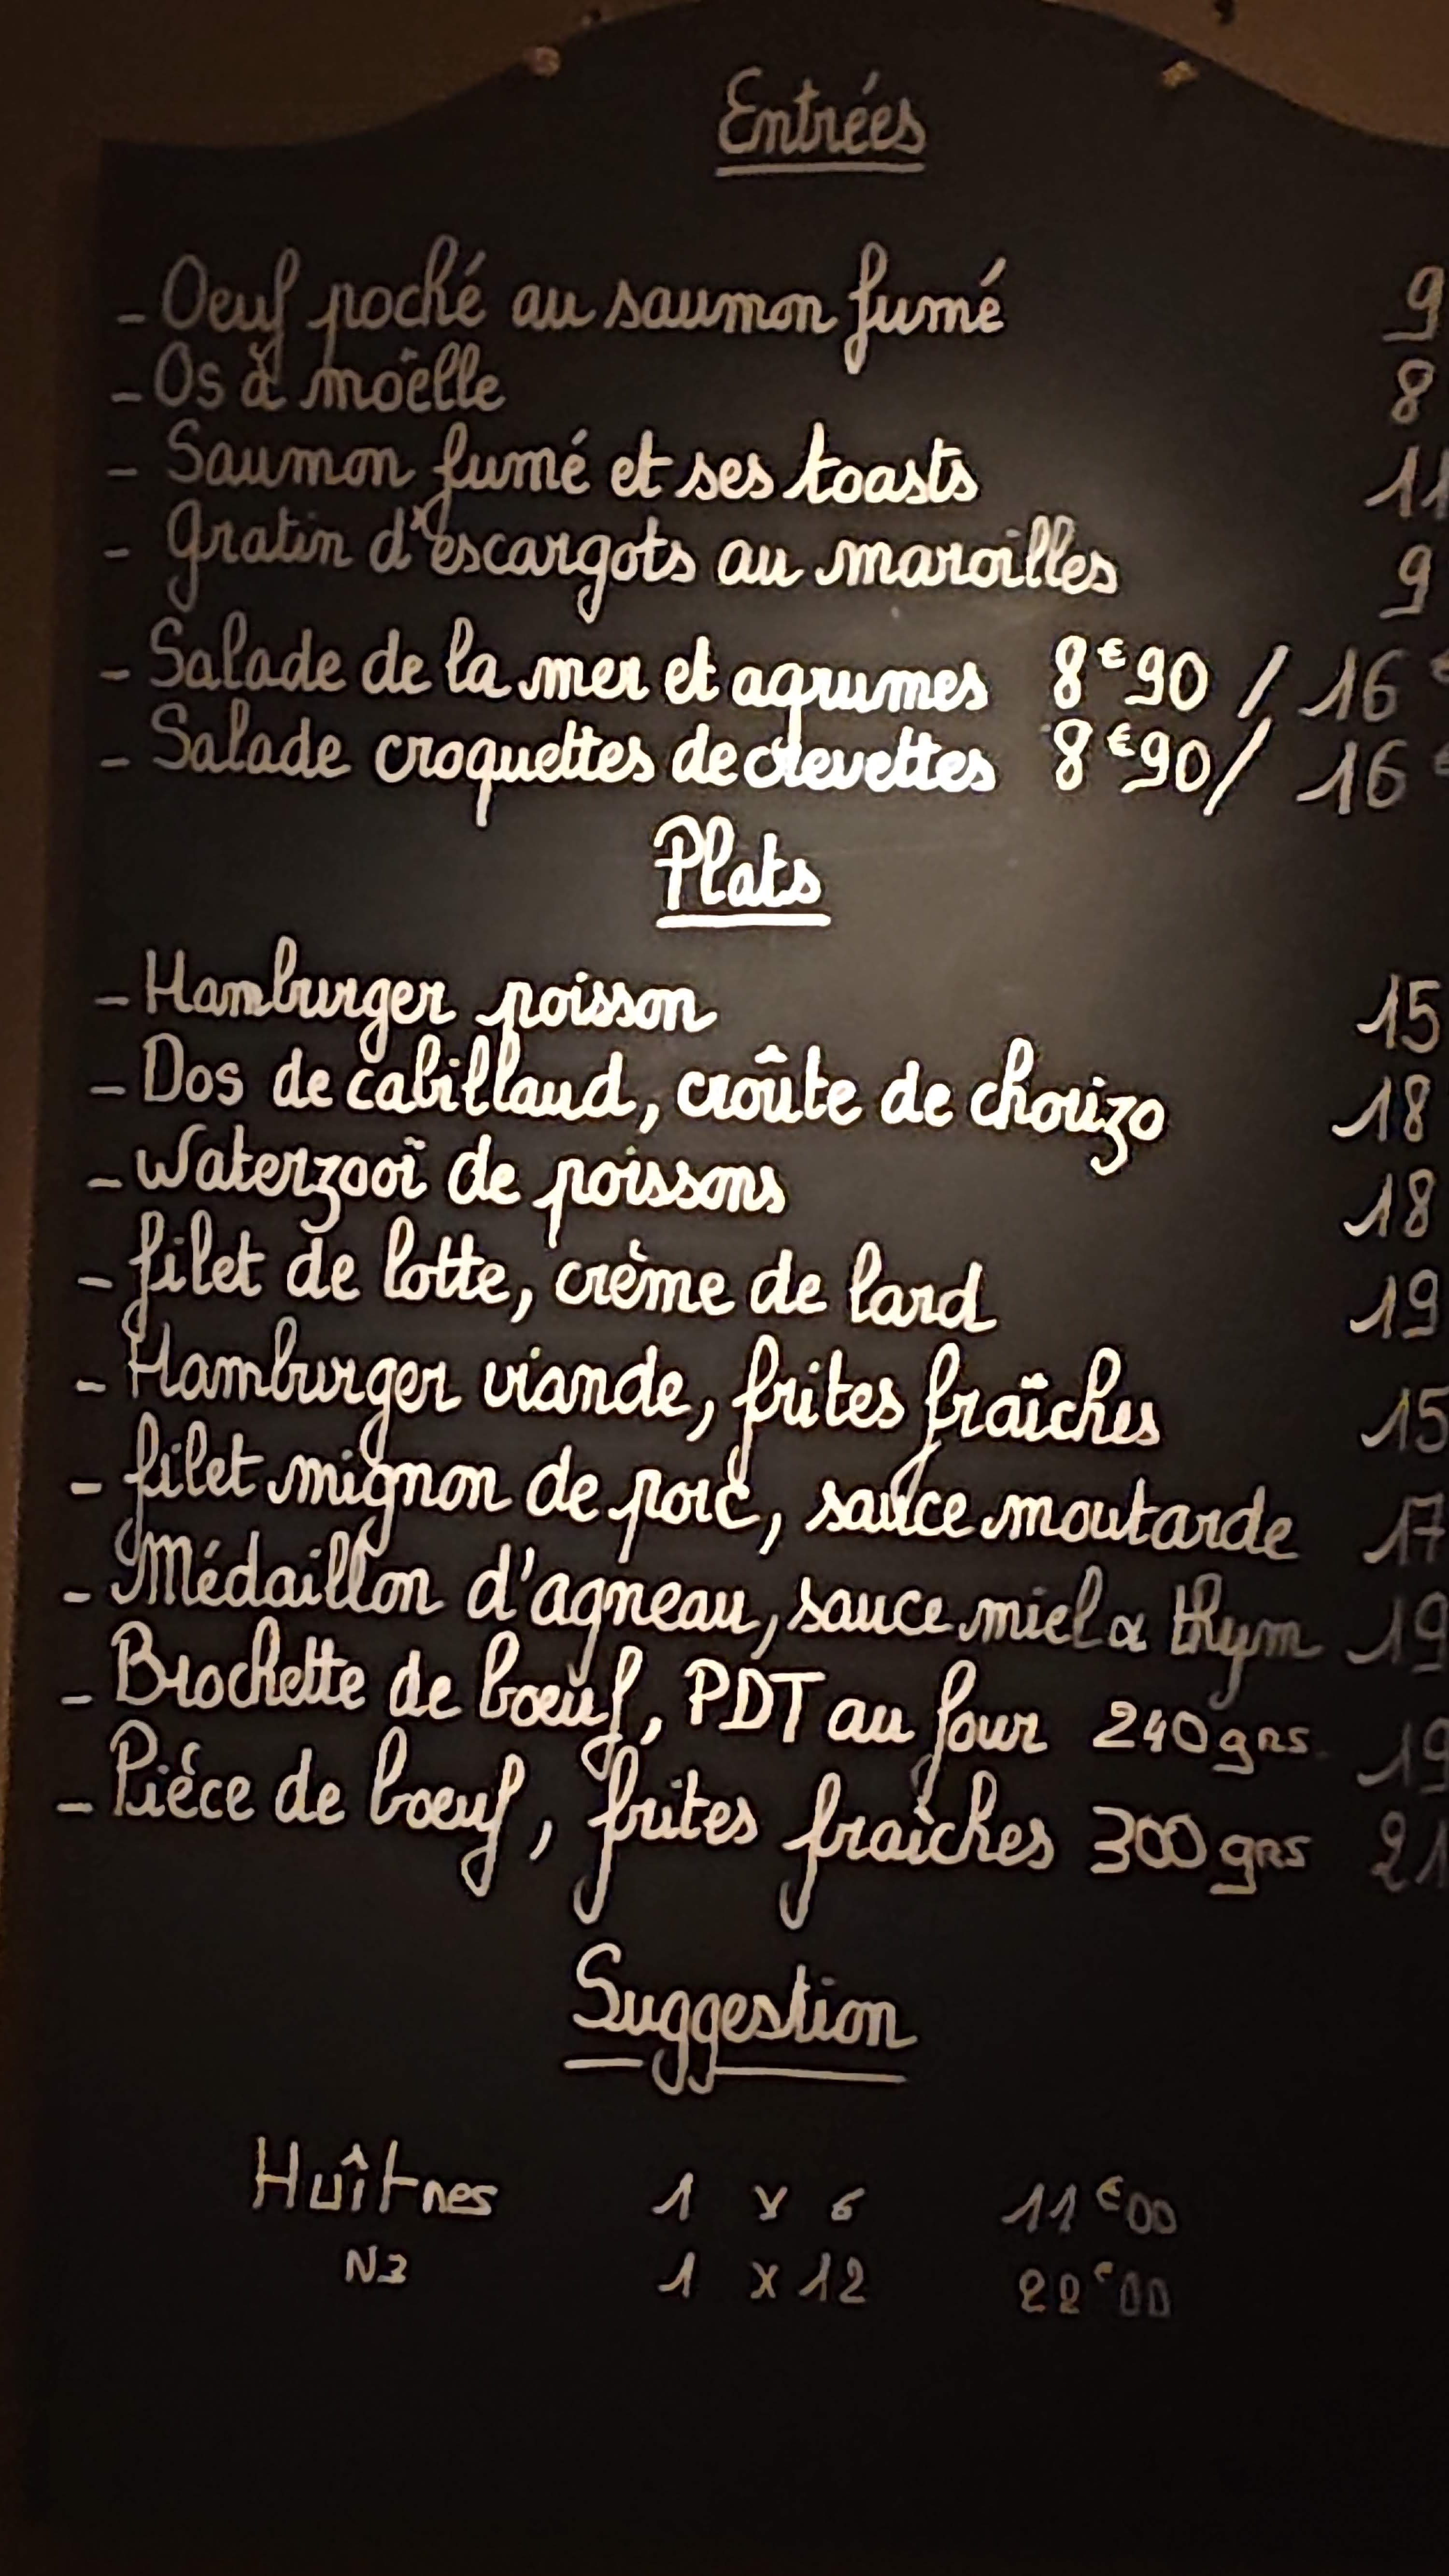 Entrées
- Oeuf poché au saumon fumé 9
- Os à moëlle 8
- Saumon fumé et ses toasts 11
- Gratin d'escargots au maroilles 9
- Salade de la mer et agrumes 8€90 / 16€
- Salade croquettes de crevettes 8€90 / 16€
Plats
- Hamburger poisson 15
- Dos de cabillaud, croûte de chorizo 18
- Waterzooï de poissons 18
- filet de lotte, crème de lard 19
- Hamburger viande, frites fraîches 15
- filet mignon de porc, sauce moutarde 17
- Médaillon d'agneau, sauce miel & thym 19
- Brochette de boeuf, PDT au four 240grs. 19
- Pièce de boeuf, frites fraîches 300grs 21
Suggestion
Huîtres 1 x 6 11€00
N3 1 x 12 22€00